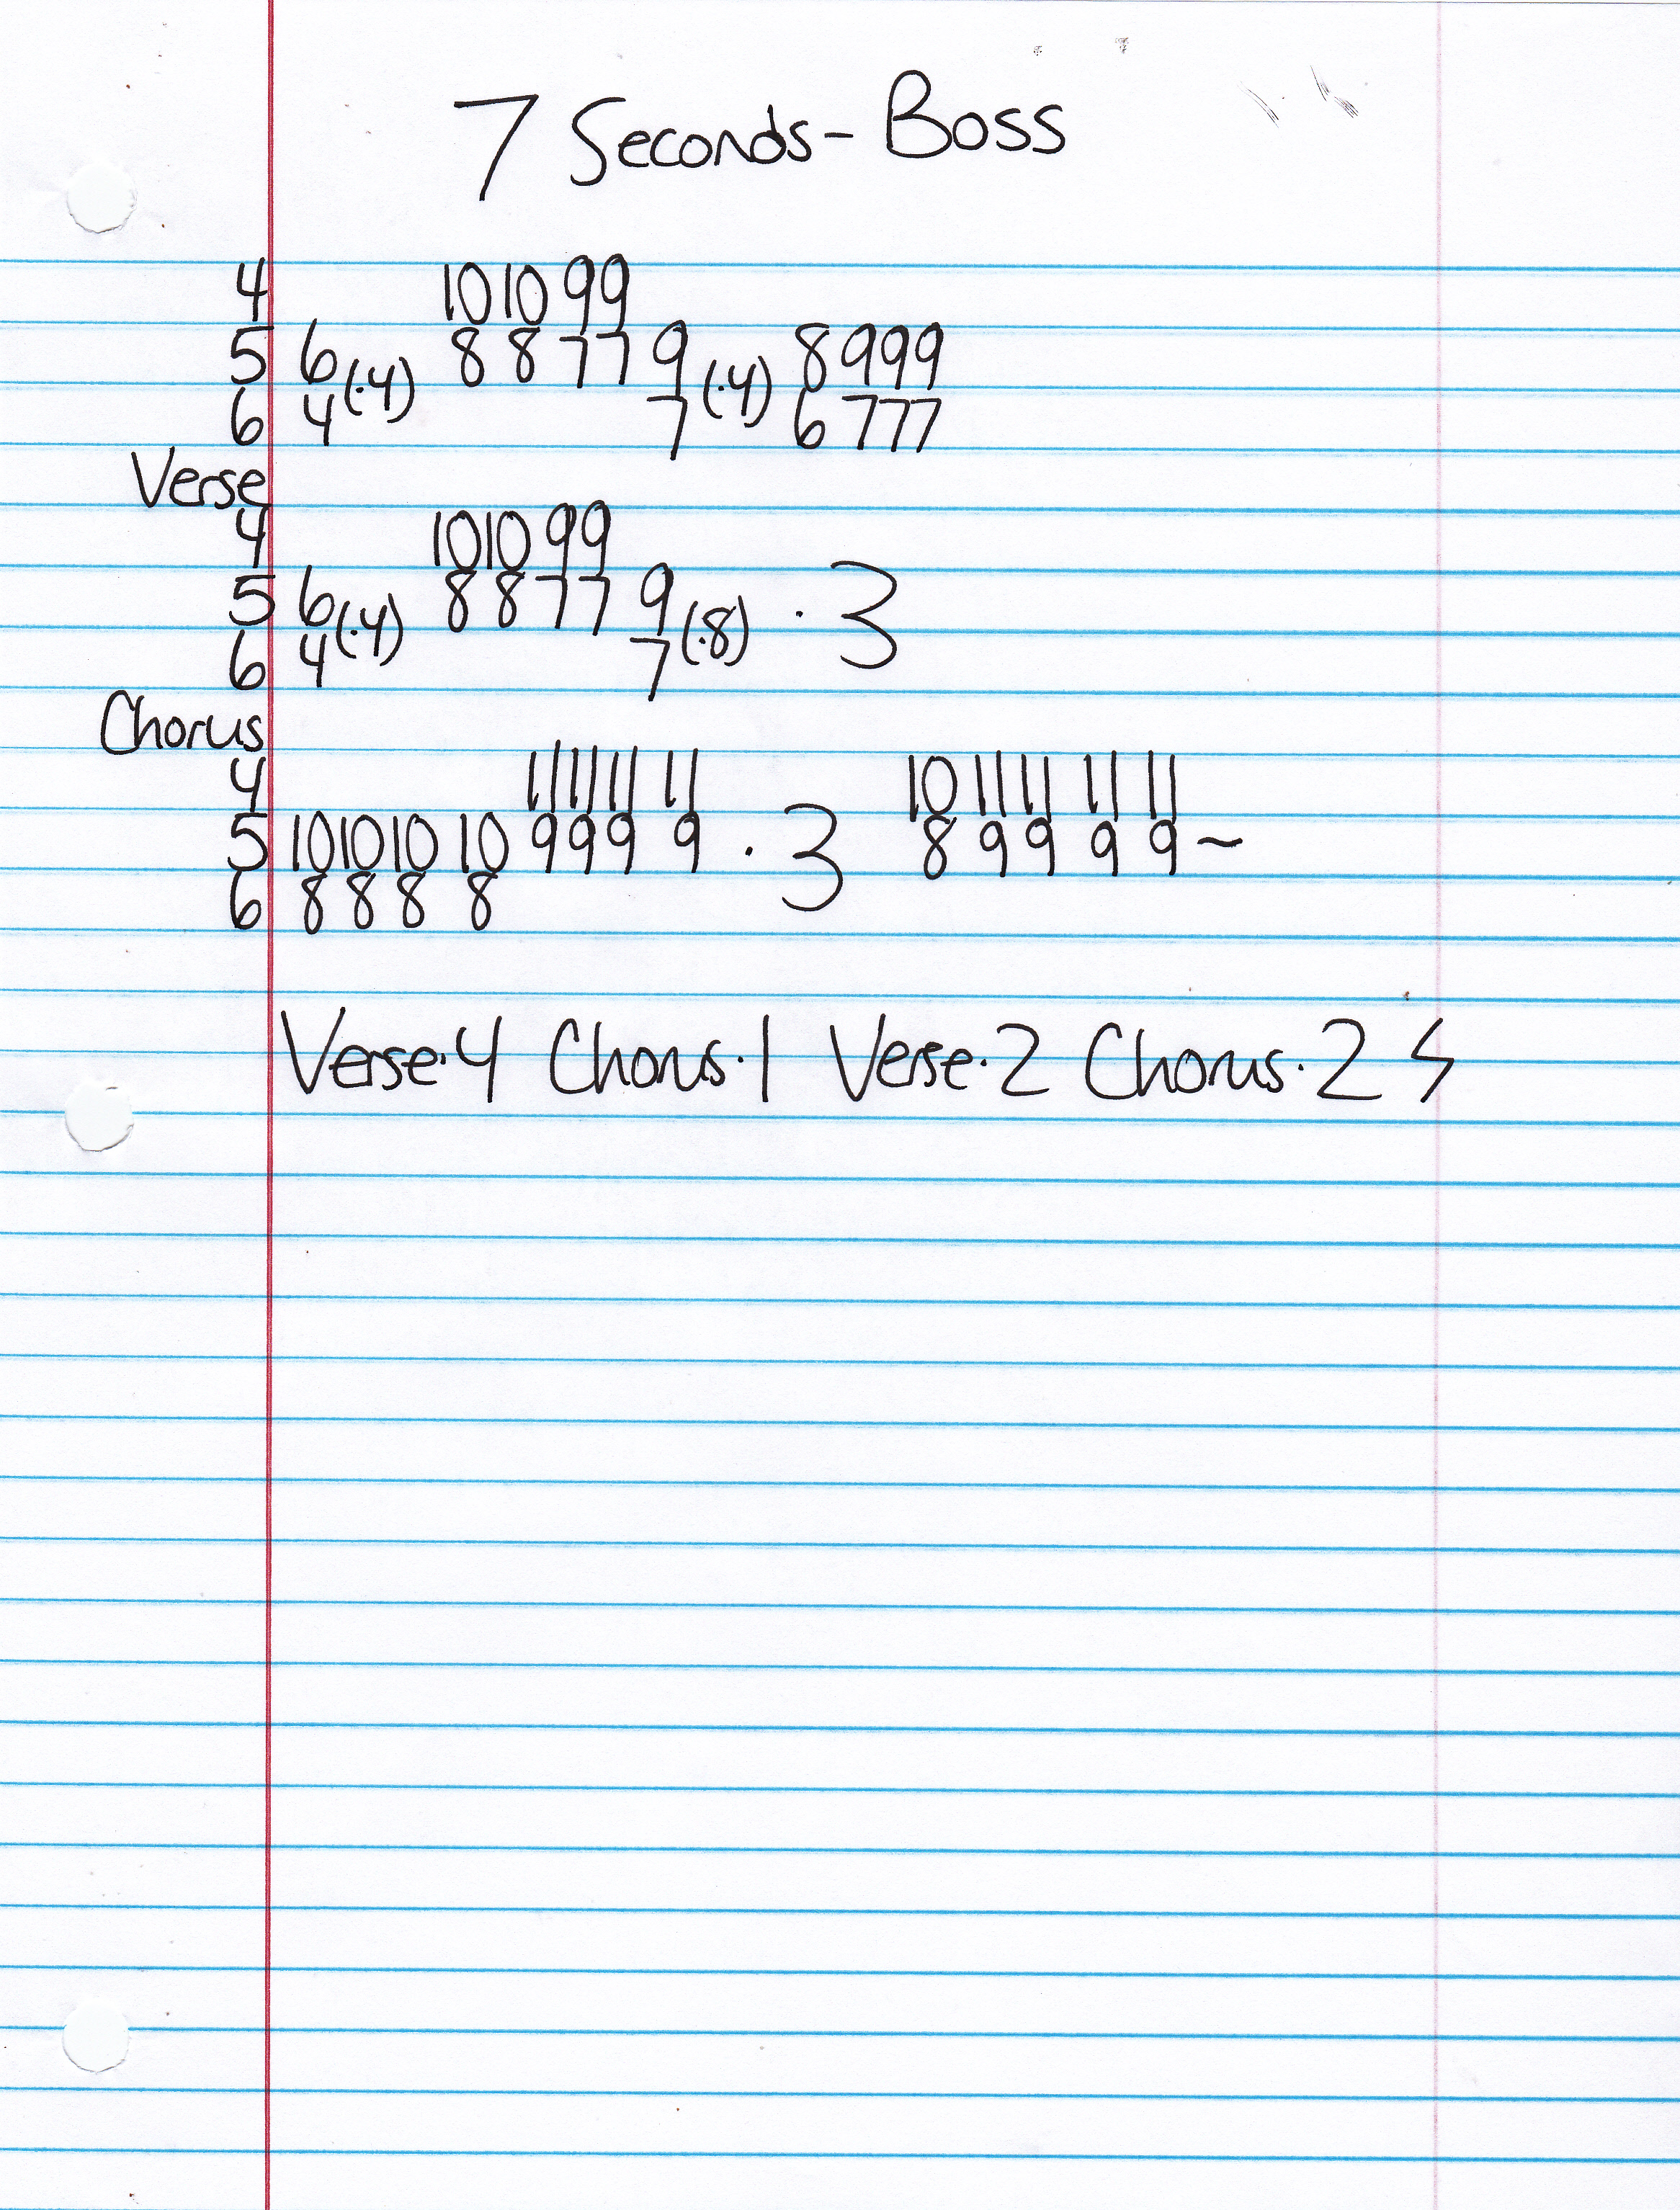 7 Seconds - Boss
4 10 10 9 9
5 6 (·4) 8 8 7 7 9 (·4) 8 9 9 9
6 4 7 6 7 7 7
Verse
4 10 10 9 9
5 6 (·4) 8 8 7 7 9 (·8) · 3
6 4 7
Chorus
4 11 11 11 11 10 11 11 11 11
5 10 10 10 10 9 9 9 9 · 3 8 9 9 9 9 ~
6 8 8 8 8
Verse·4 Chorus·1 Verse·2 Chorus·2 ϟ